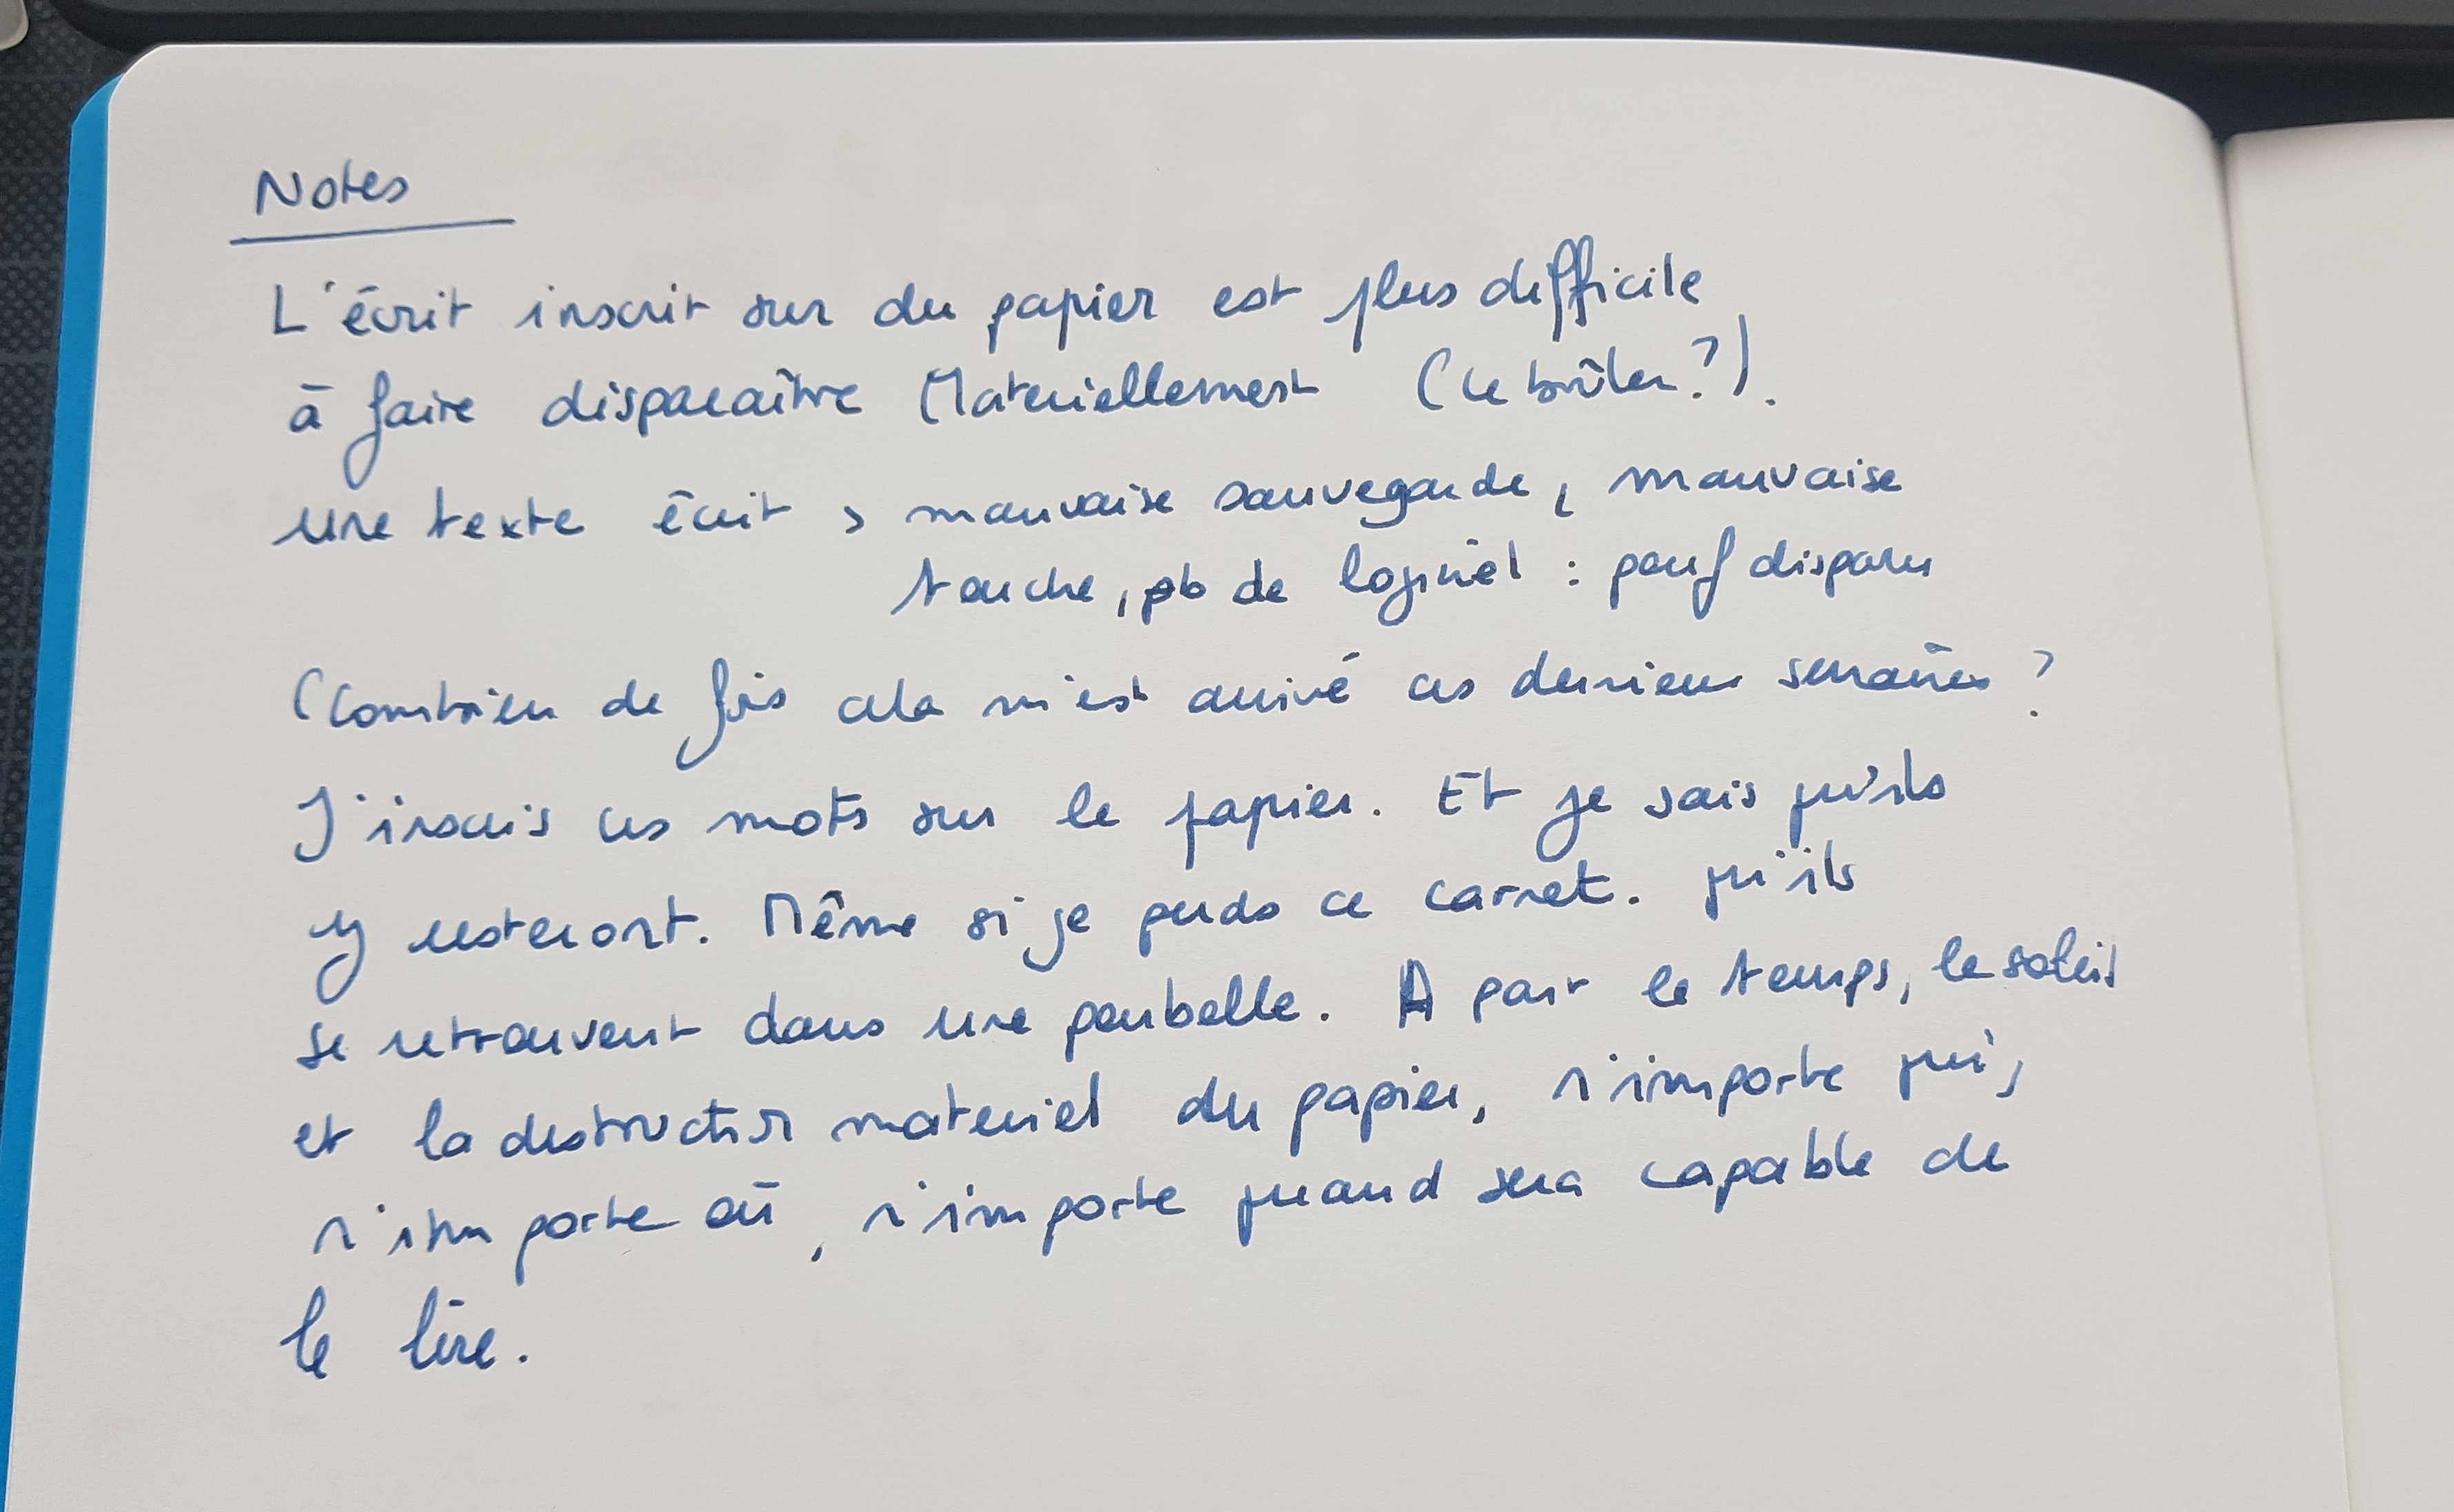 Notes
L'écrit inscrit sur du papier est plus difficile
à faire disparaître Materiellement (le brûler?).
une texte écrit > mauvaise sauvegarde, mauvaise
touche, pb de logiciel : pouf disparu
(Combien de fois cela m'est arrivé ces derniers semaines ?
J'inscris ces mots sur le papier. Et je sais qu'ils
y resteront. Même si je perds ce carnet. qu'ils
se retrouvent dans une poubelle. A part le temps, le soleil
et la destruction materiel du papier, n'importe qui,
n'importe où, n'importe quand sera capable de
le lire.